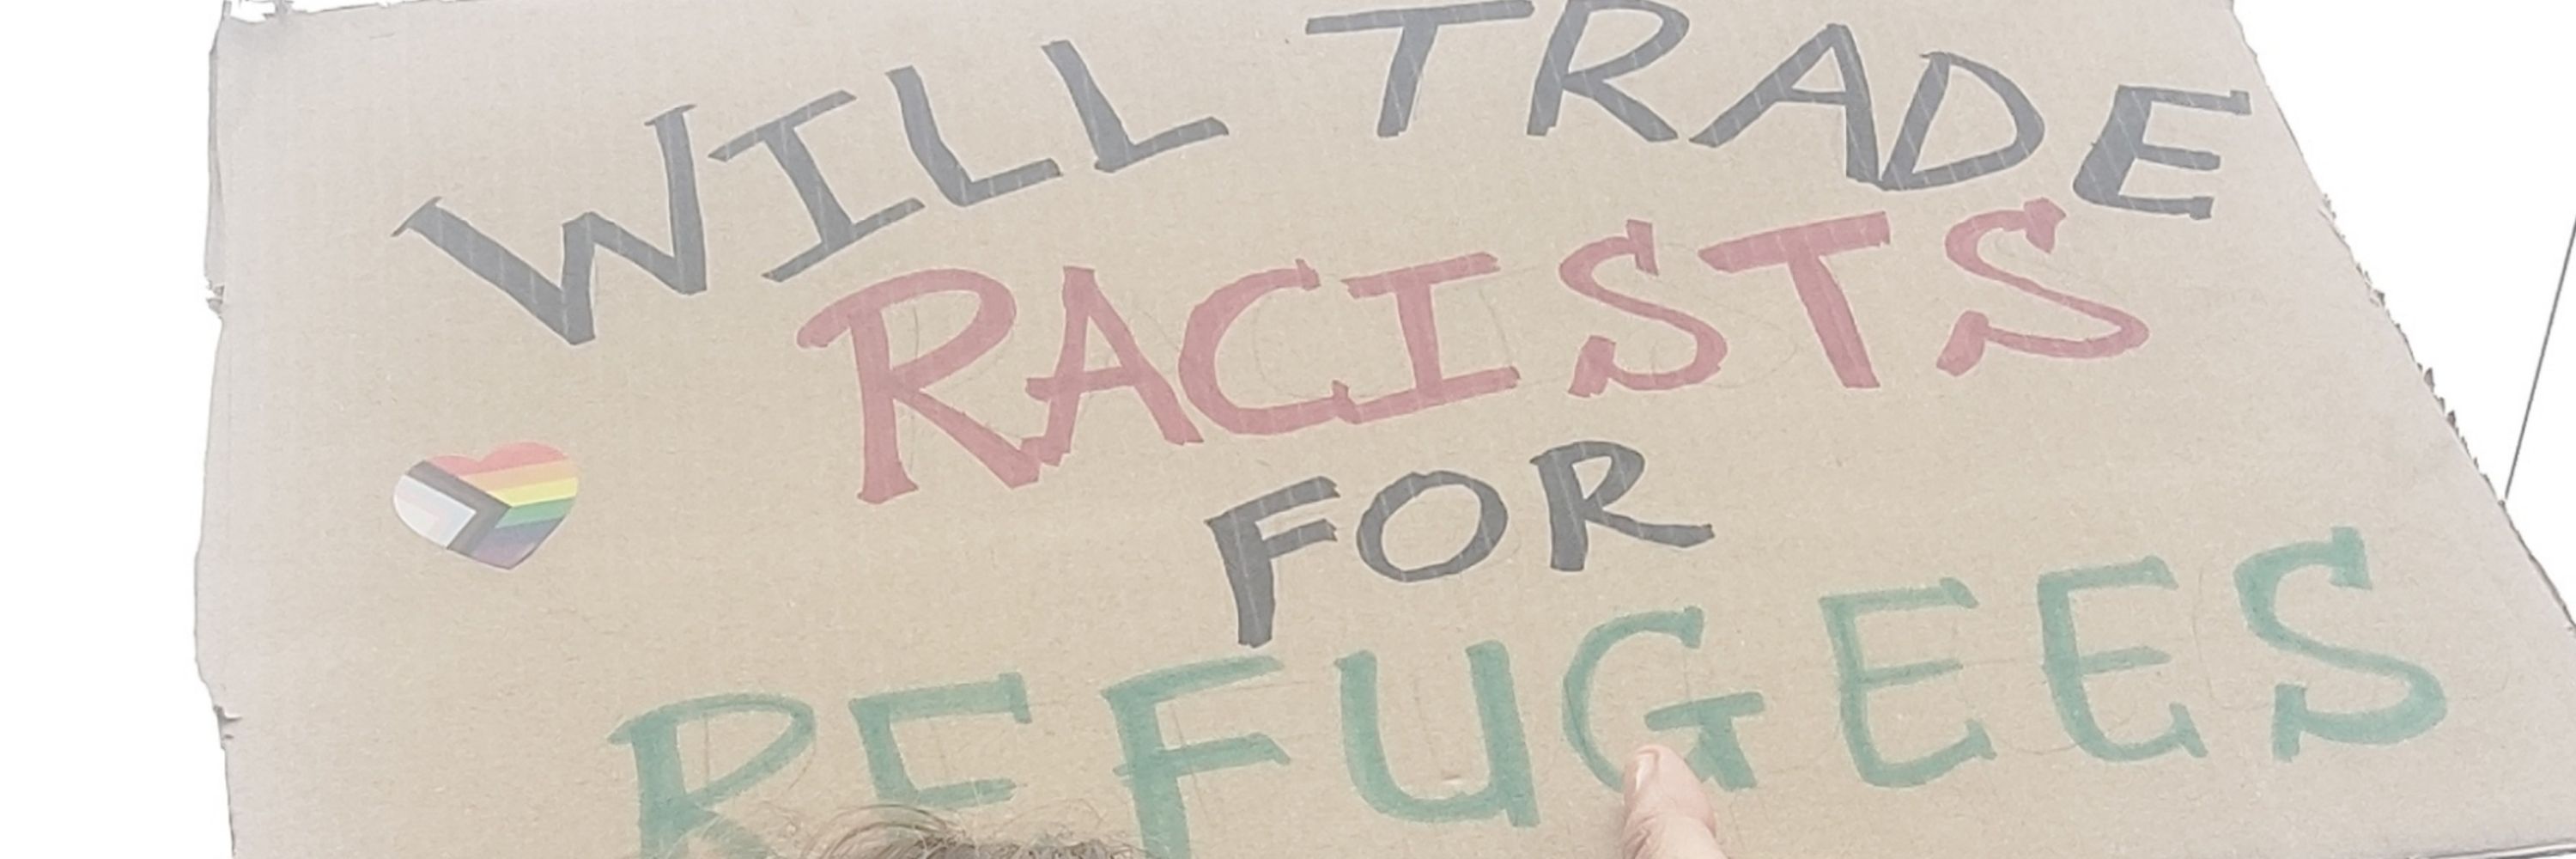 WILL TRADE
RACISTS
FOR
REFUGEES